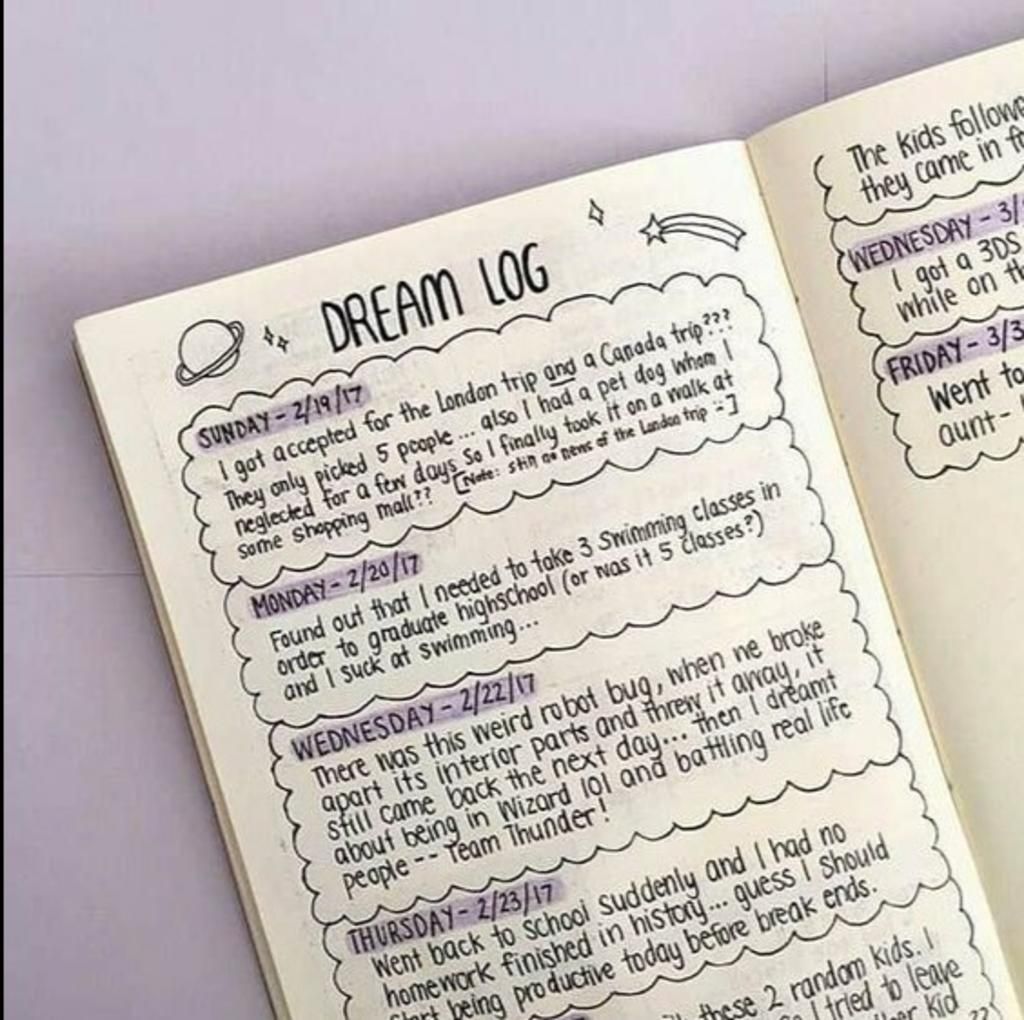 DREAM LOG
SUNDAY - 2/19/17
I got accepted for the London trip and a Canada trip???
They only picked 5 people... also I had a pet dog whom I
neglected for a few days so I finally took it on a walk at
some shopping mall?? [Note: still no news of the London trip :-]
MONDAY - 2/20/17
Found out that I needed to take 3 swimming classes in
order to graduate highschool (or was it 5 classes?)
and I suck at swimming...
WEDNESDAY - 2/22/17
There was this weird robot bug, when we broke
apart its interior parts and threw it away, it
still came back the next day... then I dreamt
about being in Wizard 101 and battling real life
people -- Team Thunder!
THURSDAY - 2/23/17
Went back to school suddenly and I had no
homework finished in history... guess I should
start being productive today before break ends.
these 2 random kids. I
I tried to leave
kid
??
The kids
they came in
WEDNESDAY - 3/
I got a 3DS
while on
FRIDAY - 3/3
Went to
aunt-